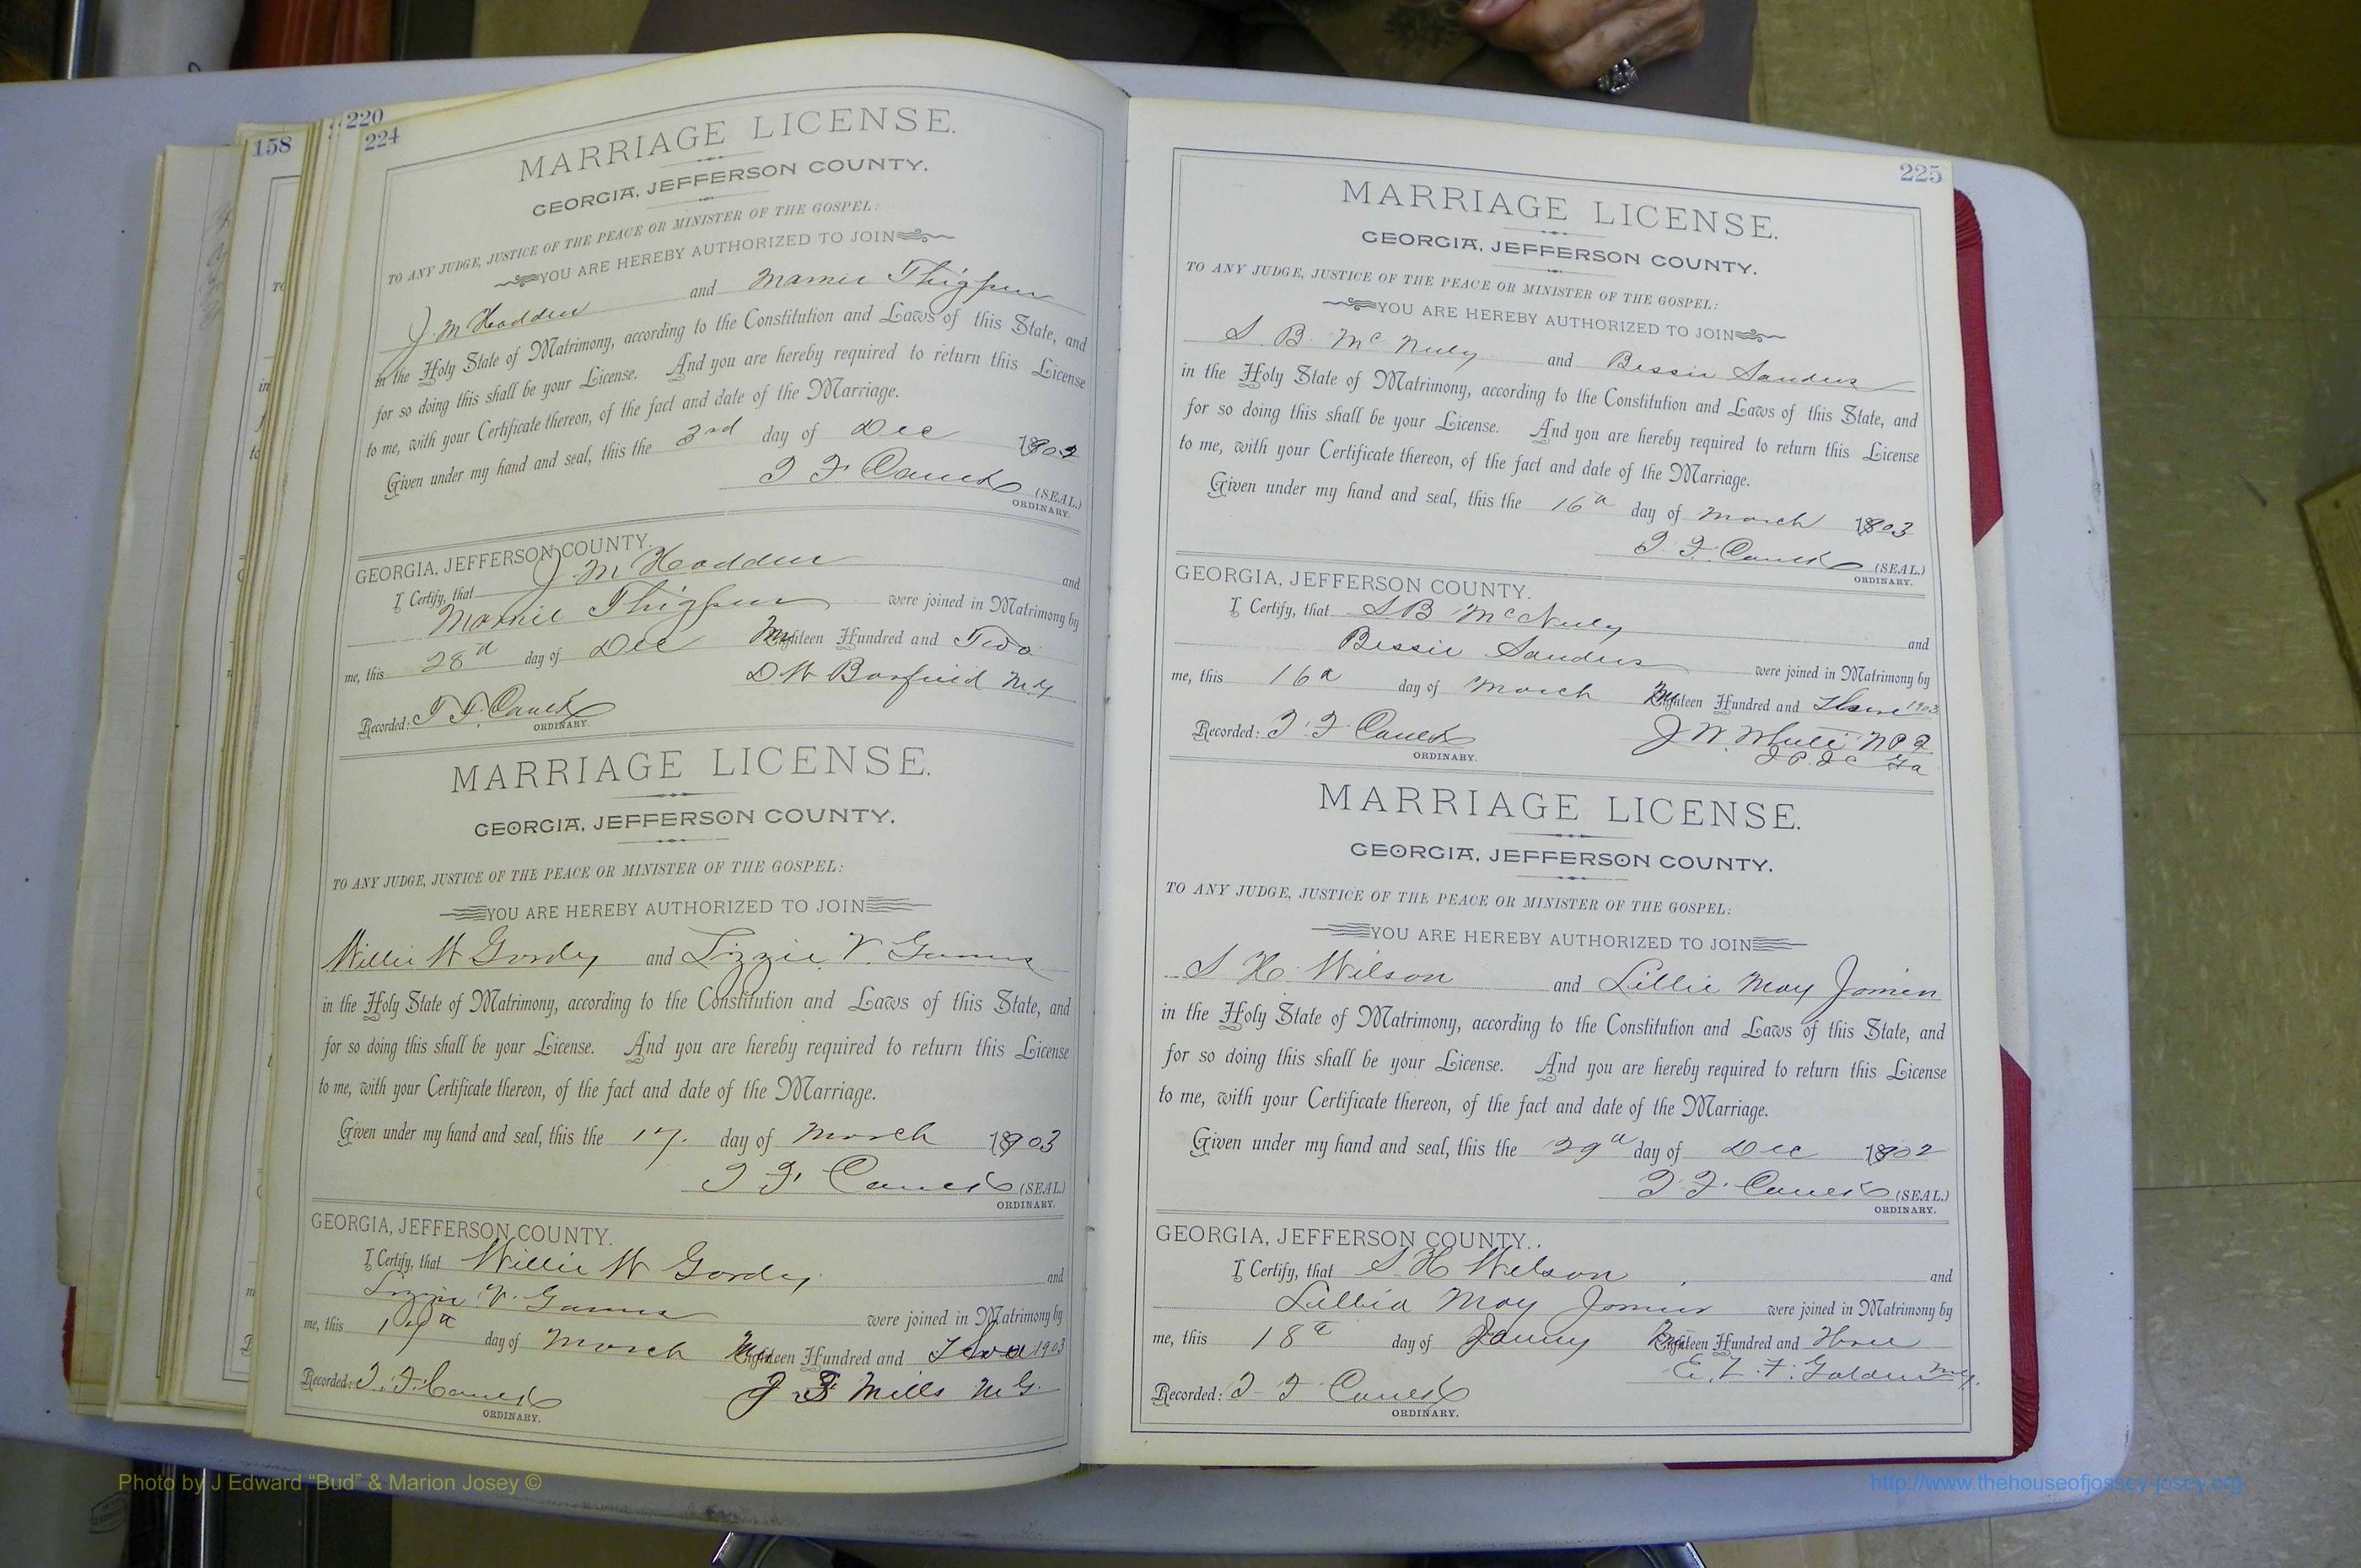 158
220
224
MARRIAGE LICENSE.
GEORGIA, JEFFERSON COUNTY.
TO ANY JUDGE, JUSTICE OF THE PEACE OR MINISTER OF THE GOSPEL:
YOU ARE HEREBY AUTHORIZED TO JOIN
J. M Hadden and Mamie Thigpen
in the Holy State of Matrimony, according to the Constitution and Laws of this State, and
for so doing this shall be your License. And you are hereby required to return this License
to me, with your Certificate thereon, of the fact and date of the Marriage.
Given under my hand and seal, this the 3rd day of Dec 1902
(SEAL.)
ORDINARY.
GEORGIA, JEFFERSON COUNTY.
I Certify, that J M Hadden and
Mamie Thigpen were joined in Matrimony by
me, this 28 day of Dec Hundred and Two
D W Barfield M.G
Recorded:
ORDINARY.
MARRIAGE LICENSE.
GEORGIA, JEFFERSON COUNTY.
TO ANY JUDGE, JUSTICE OF THE PEACE OR MINISTER OF THE GOSPEL:
YOU ARE HEREBY AUTHORIZED TO JOIN
Willie W Gordy and Lizzie V.
in the Holy State of Matrimony, according to the Constitution and Laws of this State, and
for so doing this shall be your License. And you are hereby required to return this License
to me, with your Certificate thereon, of the fact and date of the Marriage.
Given under my hand and seal, this the 17. day of March 1903
(SEAL.)
ORDINARY.
GEORGIA, JEFFERSON COUNTY.
I Certify, that Willie W Gordy and
Lizzie V. were joined in Matrimony by
me, this day of March Hundred and 1903
J F Mills M.G.
Recorded:
ORDINARY.
225
MARRIAGE LICENSE.
GEORGIA, JEFFERSON COUNTY.
TO ANY JUDGE, JUSTICE OF THE PEACE OR MINISTER OF THE GOSPEL:
YOU ARE HEREBY AUTHORIZED TO JOIN
S. B. McNeely and Bessie Sanders
in the Holy State of Matrimony, according to the Constitution and Laws of this State, and
for so doing this shall be your License. And you are hereby required to return this License
to me, with your Certificate thereon, of the fact and date of the Marriage.
Given under my hand and seal, this the 16 day of March 1903
(SEAL.)
ORDINARY.
GEORGIA, JEFFERSON COUNTY.
I Certify, that S B McNeely and
Bessie Sanders were joined in Matrimony by
me, this 16 day of March Hundred and Three 1903
J. W. N P
Ga
Recorded:
ORDINARY.
MARRIAGE LICENSE.
GEORGIA, JEFFERSON COUNTY.
TO ANY JUDGE, JUSTICE OF THE PEACE OR MINISTER OF THE GOSPEL:
YOU ARE HEREBY AUTHORIZED TO JOIN
S H Wilson and Lillie May
in the Holy State of Matrimony, according to the Constitution and Laws of this State, and
for so doing this shall be your License. And you are hereby required to return this License
to me, with your Certificate thereon, of the fact and date of the Marriage.
Given under my hand and seal, this the 29 day of Dec 1902
(SEAL.)
ORDINARY.
GEORGIA, JEFFERSON COUNTY.
I Certify, that S H Wilson and
May were joined in Matrimony by
me, this 18 day of Hundred and Three
Recorded:
ORDINARY.
Photo by J Edward “Bud” & Marion Josey ©
http://www.thehouseofjossey-josey.org